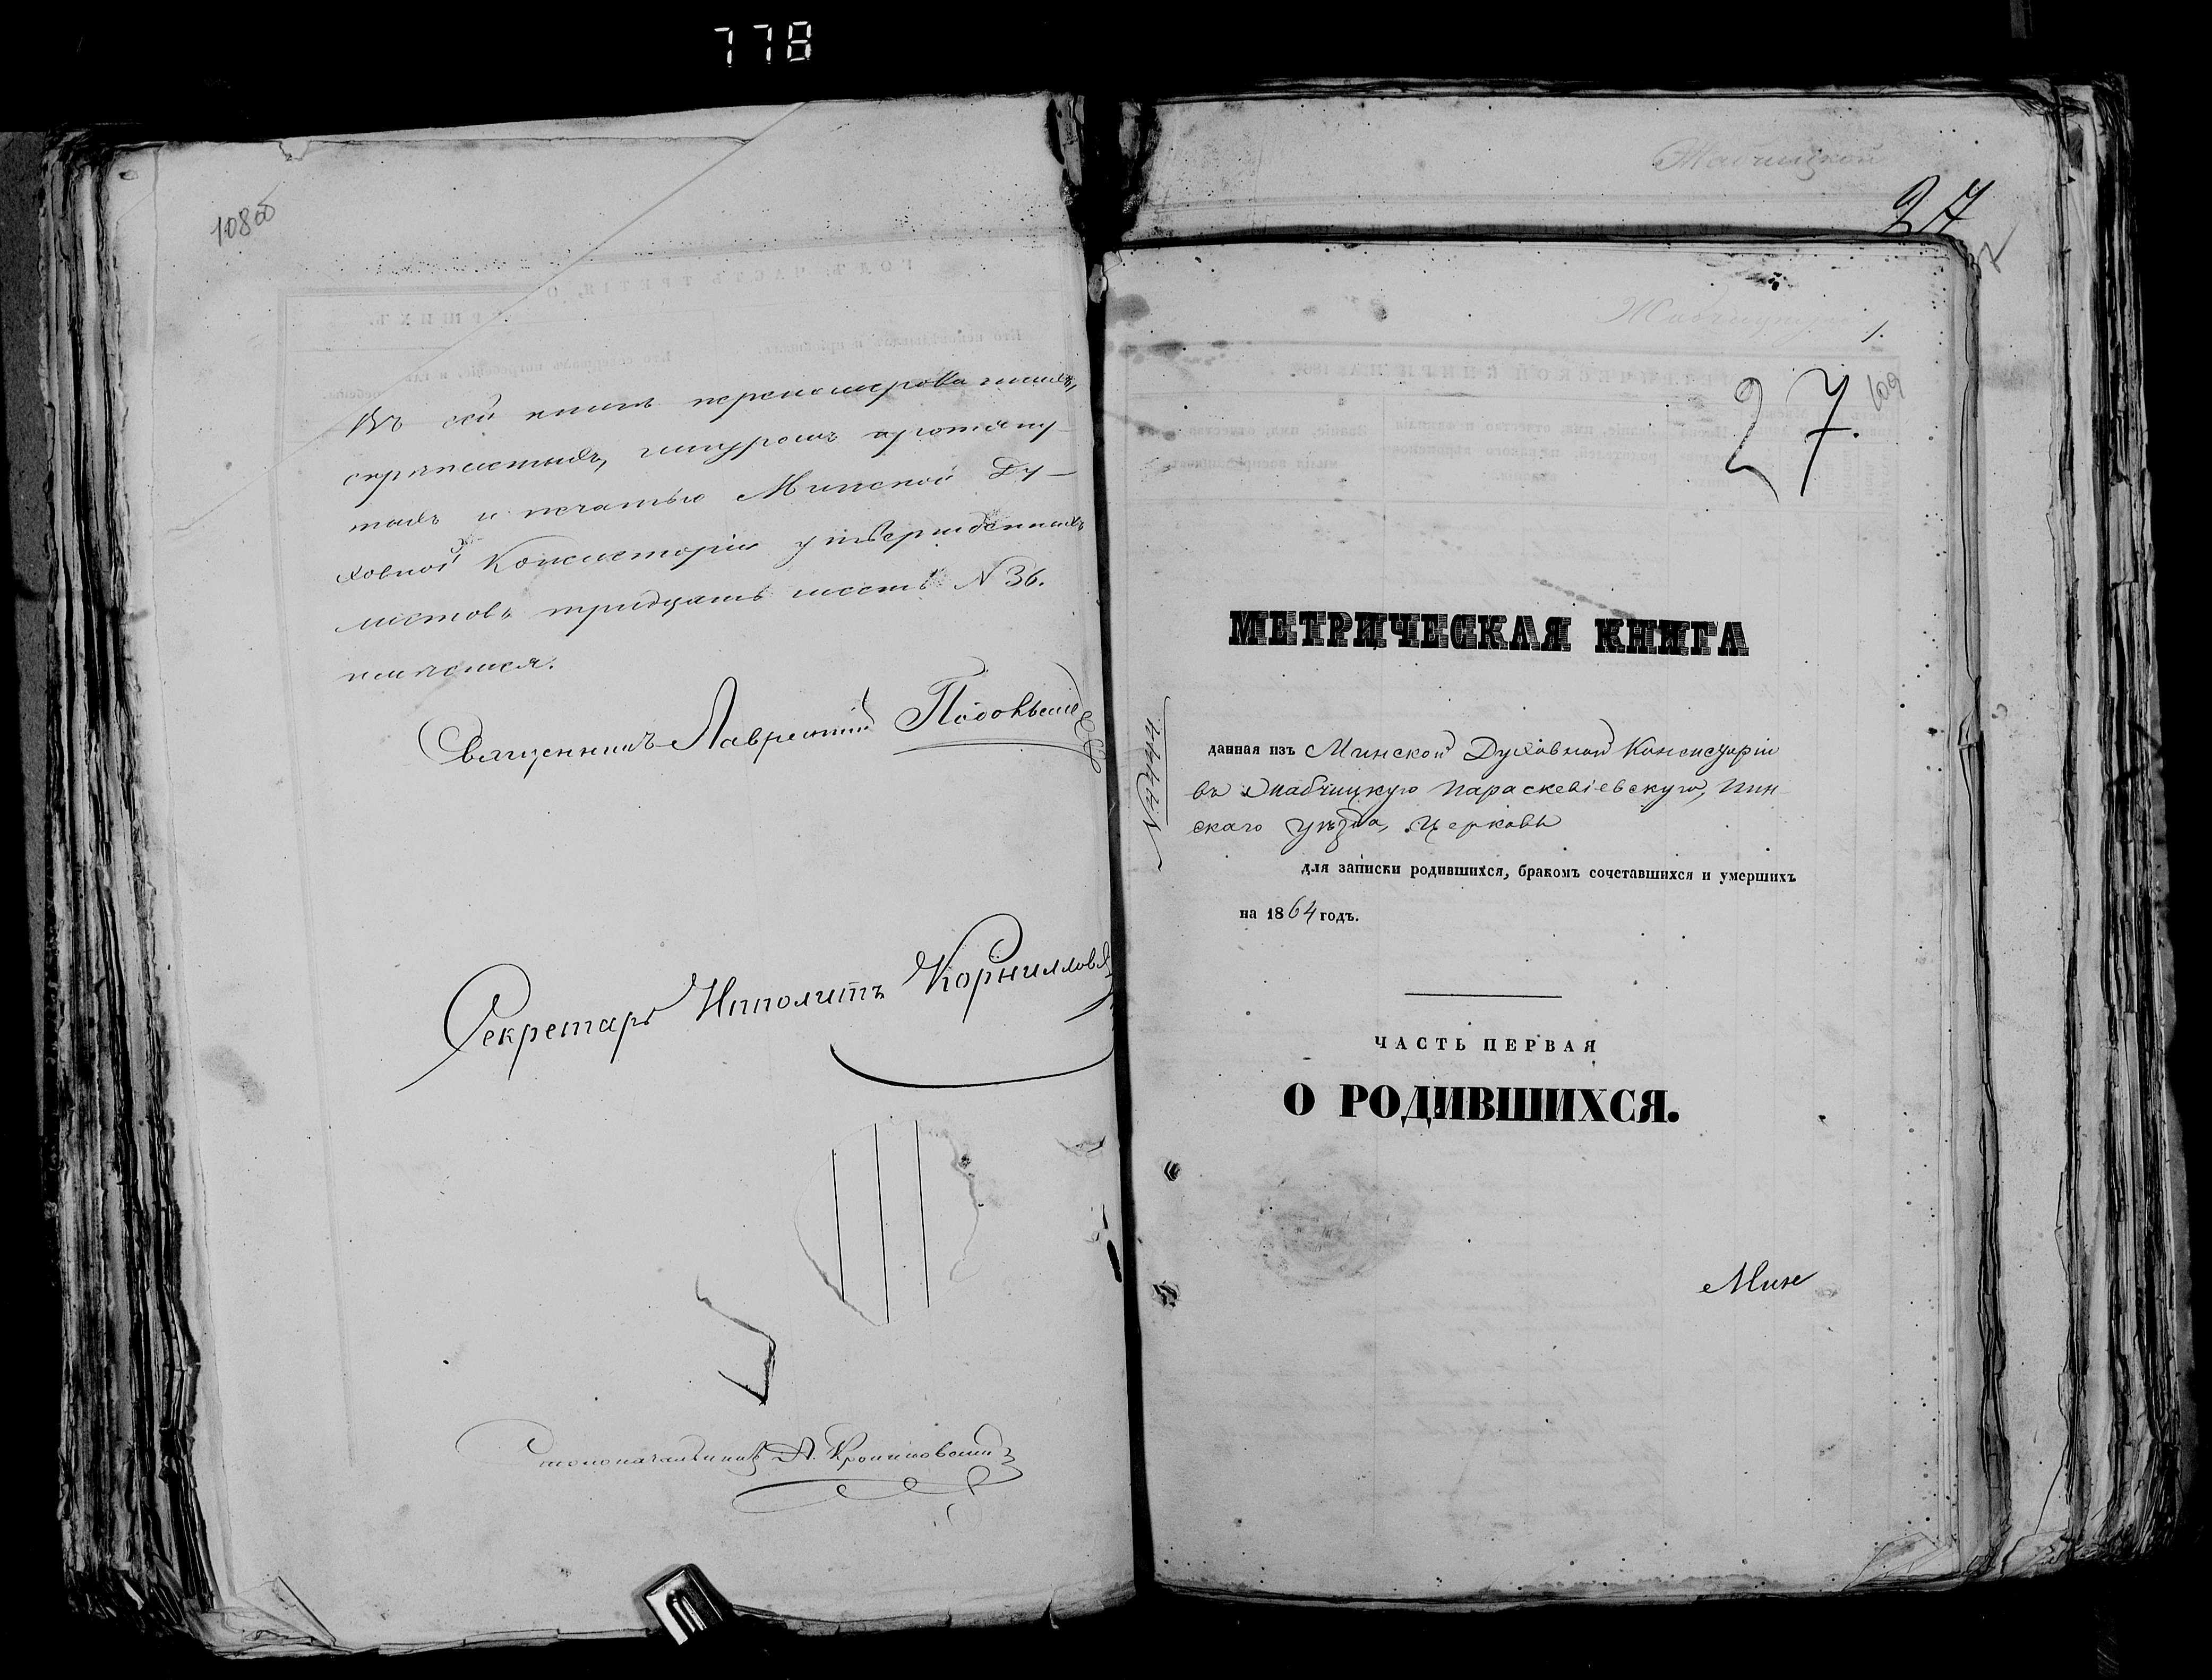 778
108об
Въ сей книгѣ перенумерованныхъ,
скрѣпленныхъ, шнуромъ протяну-
тыхъ и печатью Минской Ду-
ховной Консисторіи утвержденныхъ
листовъ тридцать шесть N 36.
имѣется.
Священникъ Лаврентій
Секретарь Ипполитъ Корниллов
Столоначальникъ А.
Жабчицкой
27
Жабчицкую
1.
27.
109
МЕТРИЧЕСКАЯ КНИГА
данная изъ Минской Духовной Консисторіи
въ Жабчицкую Параскевіевскую, Пин
скаго уѣзда, Церковь
для записки родившихся, бракомъ сочетавшихся и умершихъ
на 1864 годъ.
ЧАСТЬ ПЕРВАЯ
О РОДИВШИХСЯ.
Мин